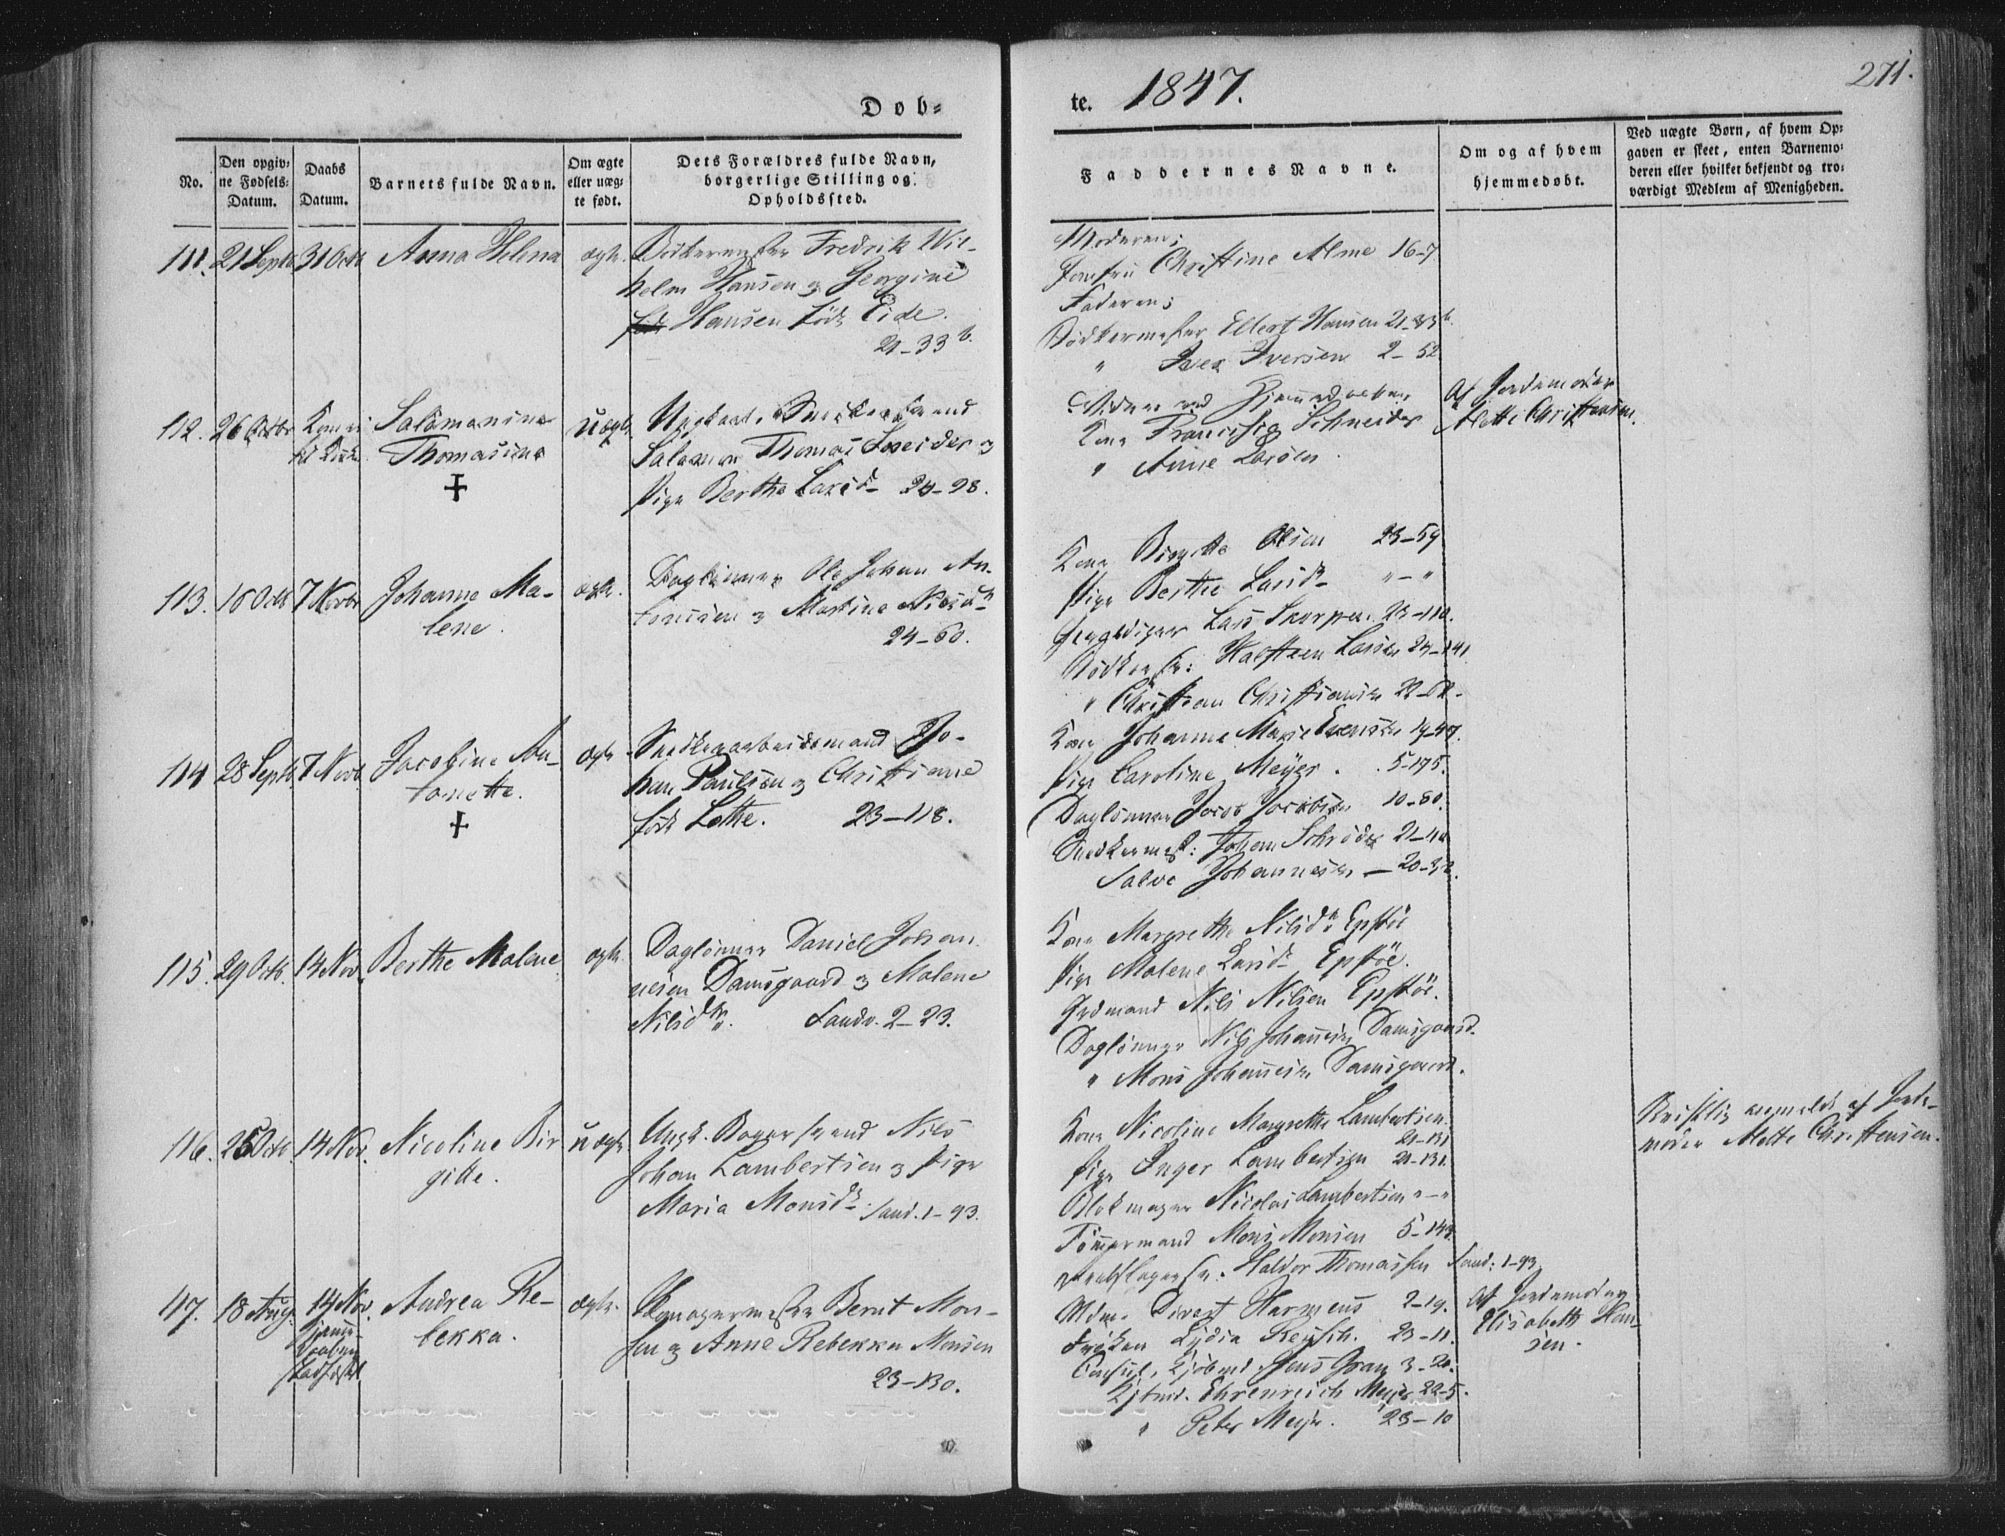 Døb-
te. 1847.
271.
No.
Den opgiv-
ne Fødsels-
Datum.
Daabs
Datum.
Barnets fulde Navn.
Om ægte
eller uæg-
te født.
Dets Forældres fulde Navn,
borgerlige Stilling og
Opholdssted.
Faddernes Navne.
Om og af hvem
hjemmedøbt.
Ved uægte Børn, af hvem Op-
gaven er skeet, enten Barnemo-
deren eller hvilket bekjendt og tro-
værdigt Medlem af Menigheden.
111. 21 Septr 31 Octb Anna Helena ægte.
Bødkermester Fredrik Wil-
helm Hansen og Georgine
Hansen født Eide.
21-33 b.
Moderen;
Jomfru Christine Alme 16-7
Faderen;
Bødkermester Ellert Hansen 21-33 b.
" Iver Iversen 2-52
112. 26 Octbr Kom ei
til Kirke
Salamanine
Thomasine
uægte
Ungkarl,
Salamon Thomas Sneider og
Pige Berthe Larsd. 24-98.
Kone Francisca Schneider
" Anne Larsen
Af Jordemoder
Alette Christensen.
113. 16 Octb 7 Novbr Johanne Ma-
lene.
ægte.
Daglønner Ole Johan An-
tonisen og Martine Nilsd.
24-60.
Kone Birgitte Olsen 23-59
Pige Berthe Larsd. " - "
Lars Skorpen 23-110.
Halsteen Larsen 24-141.
" Christian Christiansen 22-62.
114 28 Septb 7 Novb. Jacobine An-
tonette.
ægte
Snedkerarbeidsmand Jo-
han Paulsen og Christiane
født Lotte. 23-118.
Kone Johanne Marie Evensen 19-47.
Pige Caroline Meyer. 5-195.
Daglønner Jacob Jacobsen 10-80.
Snedkermest: Johan Schrøder 21-40
Salve Johannesen - 20-32.
115. 29 Octb. 14 Nov. Berthe Malene ægte
Daglønner Daniel Johan-
nesen Damsgaard og Malene
Nilsd. Sandv. 2-23.
Kone Margrethe Nilsd.
Pige Malene Larsd.
Nils Nilsen
Daglønner Nils Johannesen Damsgaard.
" Mons Johannesen Damsgaard.
116. 25 Octb. 14 Nov. Nicoline Bir-
gitte.
uægte
Ungk. Bagersvend Nils
Johan Lambertsen og Pige
Maria Monsd. Sand. 1-93.
Kone Nicoline Margrethe Lambertsen.
21-131
Pige Inger Lambertsen 21-131.
Blokmager Nicolai Lambertsen " - "
Tømmermand Mons Monsen 5-144
Haldor Thomassen Sand: 1-93
Skriftlig anmeldt af Jorde-
moder Alette Christensen.
117. 18 Aug. 14 Nov.
Hjemme-
Daaben
stadfæstet
Andrea Re-
bekka.
ægte.
Skomagermester Bernt Mon-
sen og Anne Rebekka Monsen
23-130.
Mdme. Divert Harmens 2-19.
Frøken Lydia Reusch. 23-11.
Consul, Kjøbmd Jens Gran 3-20.
Kjbmd. Ehrenreich Meyer 22-5.
" Peter Meyer. 23-10
Af Jordemoder
Elisabeth Han-
sen.